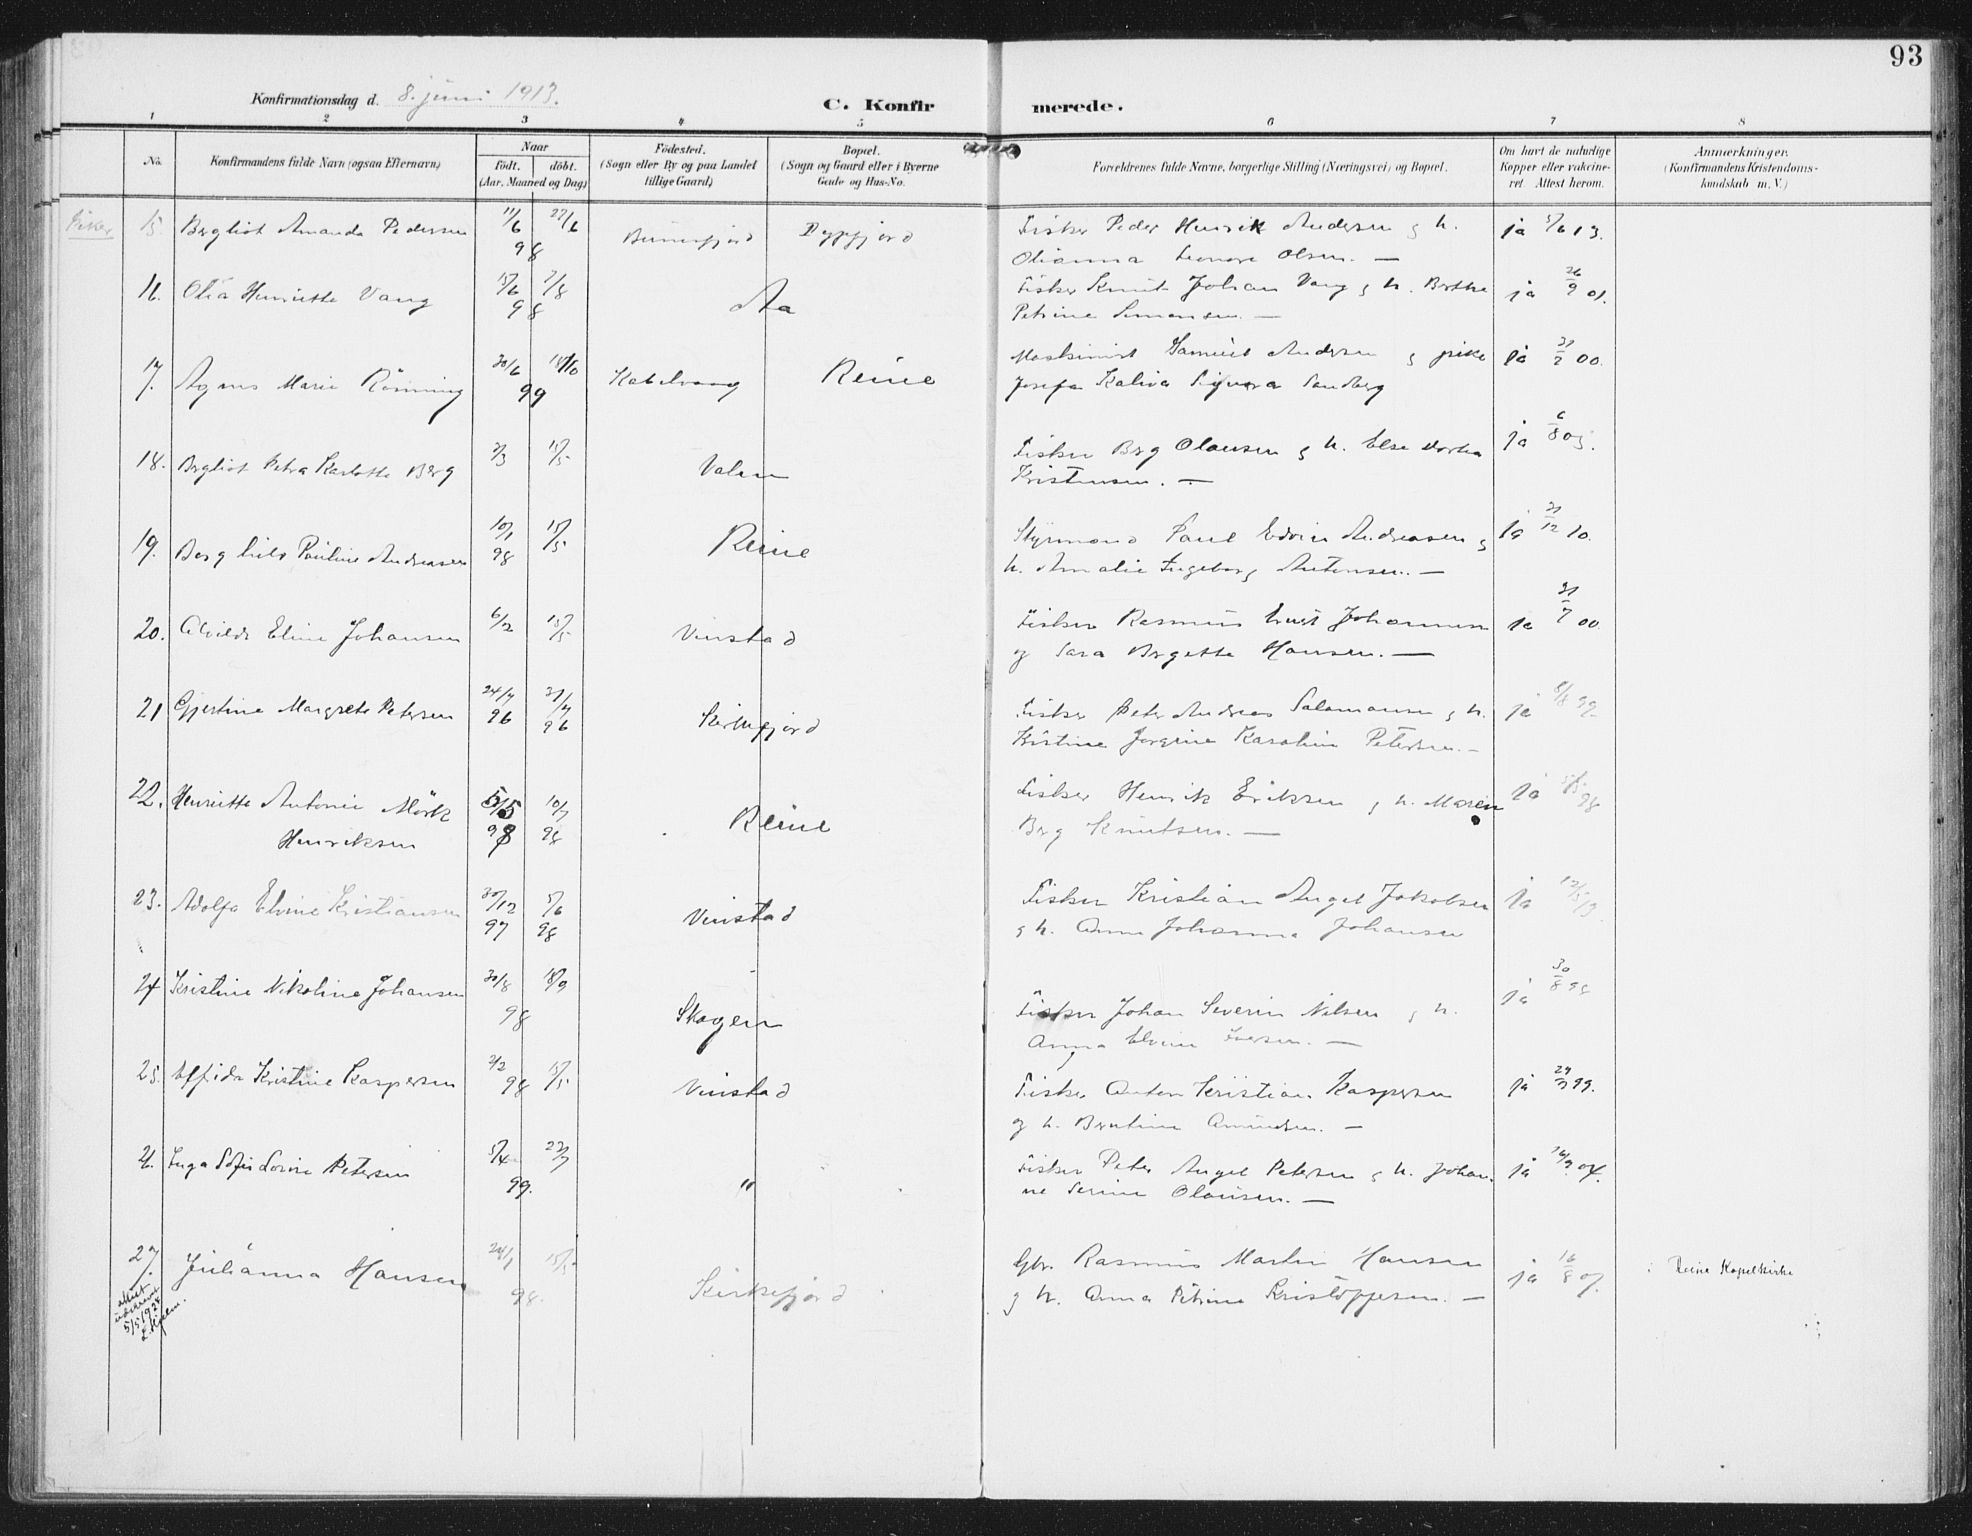 93
Konfirmationsdag d. 8. juni 1913.
C. Konfirmerede.
1 2 3 4 5 6 7 8
No.
Konfirmandens fulde Navn (ogsaa Efternavn)
Naar
født. døbt.
(Aar, Maaned og Dag)
Fødested.
(Sogn eller By og paa Landet
tillige Gaard)
Bopæl.
(Sogn og Gaard eller i Byerne
Gade og Hus-No.
Forældrenes fulde Navne, borgerlige Stilling (Næringsvei) og Bopæl.
Om havt de naturlige
Kopper eller vakcine-
ret. Attest herom.
Anmærkninger.
(Konfirmandens Kristendoms-
kundskab m. V.)
Piker 15. Bergliot Amanda Pedersen 11/6 27/6 98 Bunesfjord Dypfjord Fisker Peder Henrik Andersen g h. ja 5/6 13.
Olianna Leonore Olsen. —
16. Olia Henriette Vang 15/6 7/8 98 Aa Fisker Knut Johan Vang g h. Berthe ja 26/9 01.
Petrine Simonsen. —
17. Agnes Marie Rönning 20/6 18/10 99 Kabelvaag Reine Maskinist Samuel Andersen g pike ja 00.
Josefa Kaliva Signora Sandberg
18. Bergliot Petra Karlotte Berg 2/3 15/5 Valen Fisker Berg Olausen g h. Else Dorthea ja 6/8 03.
Kristensen. —
19. Borghild Pauline Andreasen 10/1 98 15/5 Reine Styrmand Paul Edvin Andreasen g ja 31/12 10.
h. Amalie Ingeborg Antonsen. —
20. Alvilde Eline Johansen 6/2 15/5 Vinstad Fisker Rasmus Johannesen ja 31/7 00.
og Sara Bergette Hansen. —
21 Gjertine Margrete Petersen 24/4 96 96 Kirkefjord Fisker Peter Andreas Salamonsen g h. ja 8/8 99.
Kristine Jorgine Karoline Petersen. —
22. Henriette Antonie Mörk 5/5 98 10/7 98 Reine Fisker Henrik Eriksen g h. Maren ja 98
Henriksen Berg Knutsen. —
23. Adolfa Elvine Kristiansen 30/12 97 5/6 98 Vinstad Fisker Kristian Angel Jakobsen ja 12/5 13.
g h. Anne Johanna Johansen
24 Kristine Nikoline Johansen 30/8 18/9 98 Skogen Fisker Johan Severin Nilsen g h. ja 30/8 98
Anna Elvine Iversen. —
25. Kristine Kaspersen 2/2 98 15/5 Vinstad Fisker Anton Kristian Kaspersen ja 99.
og h. Berntine Amundsen. —
26. Inga Sofie Lovise Petersen 5/4 99. 23/7 " Fisker Peter Angel Petersen g h. Johan- ja 04.
ne Serine Olausen. —
27. Julianna Hansen 24/1 98. 15/5 Kirkefjord Gbr. Rasmus Martin Hansen ja 16/8 07. i Reine Kapelkirke
g h. Anna Petrine Kristoffersen. —
attest
utskrevet
5/5 1928
L. Hjelm.